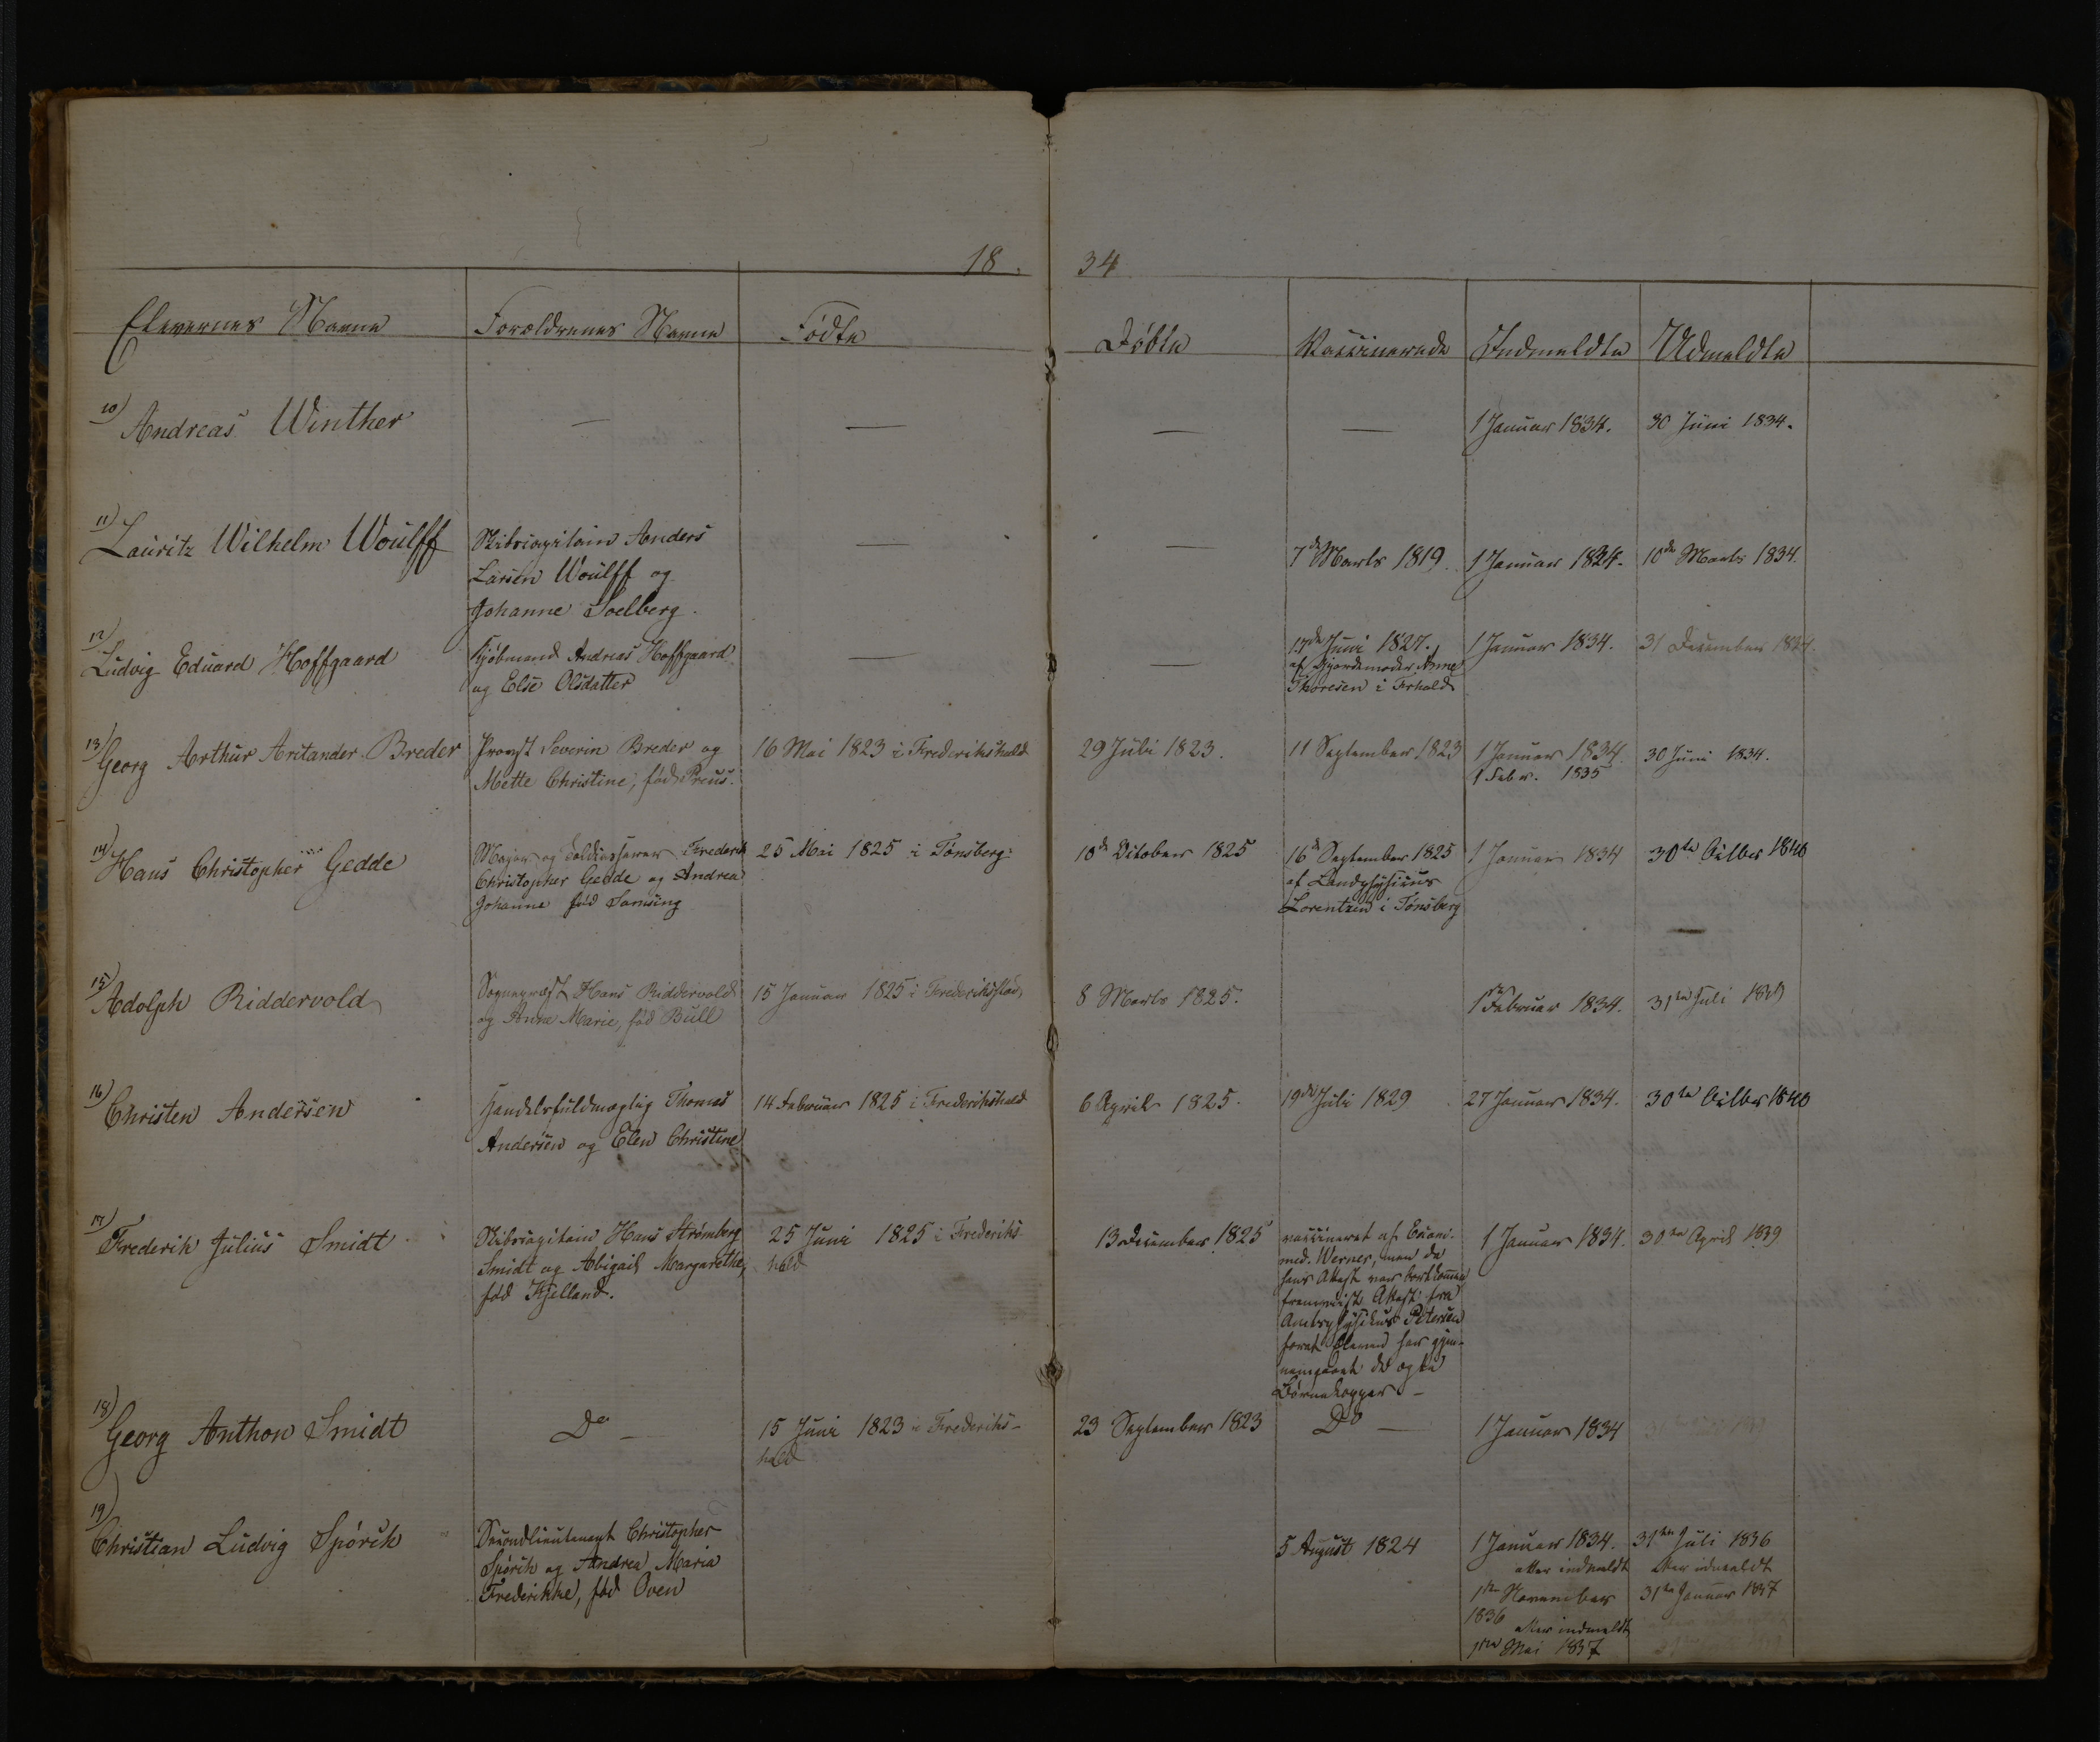 18. 34
Elevernes Navne Forældrenes Navne Fødte Døbte Vaccinerede Indmeldte Udmeldte
10) Andreas Winther — — — — 1 Januar 1834. 30 Juni 1834.
11) Lauritz Wilhelm Woulff Skibscapitain Anders — — 7de Marts 1819. 1 Januar 1834. 10de Marts 1834.
Larsen Woulff og
Johanne Soelberg.
12) Ludvig Eduard Hoffgaard Kjøbmand Andreas Hoffgaard — — 17de Juni 1827. 1 Januar 1834. 31 December 1834.
og Else Olsdatter af Gjordemoder Anne
Thoresen i Frhald
13) Georg Arthur Aritander Breder Provst Severin Breder og 16 Mai 1823 i Frederikshald 29 Juli 1823. 11 September 1823 1 Januar 1834. 30 Juni 1834.
Mette Christine, fød Preus. 1 Febr. 1835
14) Hans Christopher Gedde Major og Toldinspektør Frederik 25 Mai 1825 i Tønsberg 10de October 1825 16de September 1825 1 Januar 1834 30te Octbr 1840
Christopher Gedde og Andrea af Landphysicus
Johanne fød Samsing Lorentzen i Tønsberg
15) Adolph Riddervold Sognepræst Hans Riddervold 15 Januar 1825 i Frederiksstad 8 Marts 1825. 1ste Februar 1834. 31te Juli 1839
og Anne Marie, fød Bull
16) Christen Andersen Handelsfuldmægtig Thomas 14 Februar 1825 i Frederikshald 6 April 1825. 19de Juli 1829 27 Januar 1834. 30te Octbr 1840
Andersen og Elen Christine
17) Frederik Julius Smidt Skibscapitain Hans Strömberg 25 Juni 1825 i Frederiks- 13 December 1825 vaccineret af Exam. 1 Januar 1834. 30te April 1839
Smidt og Abigail Margarethe, hald med. Werner, men da
fød Kjelland. hans Attest var bortkommen
fremviist Attest fra
Amtsphysikus Petersen
for at Eleven har gjen-
nemgaaet de ægte
Børnekopper —
18) Georg Anthon Smidt Do — 15 Juni 1823 i Frederiks- 23 September 1823 Do — 1 Januar 1834
hald
19) Christian Ludvig Spörck Secondlieutenant Christopher 5 August 1824 1 Januar 1834. 31te Juli 1836
Spörck og Andrea Maria atter indmeldt atter udmeldt
Frederikke, fød Oven 1ste November 31te Januar 1837
1836 atter indmeldt
1ste Mai 1837